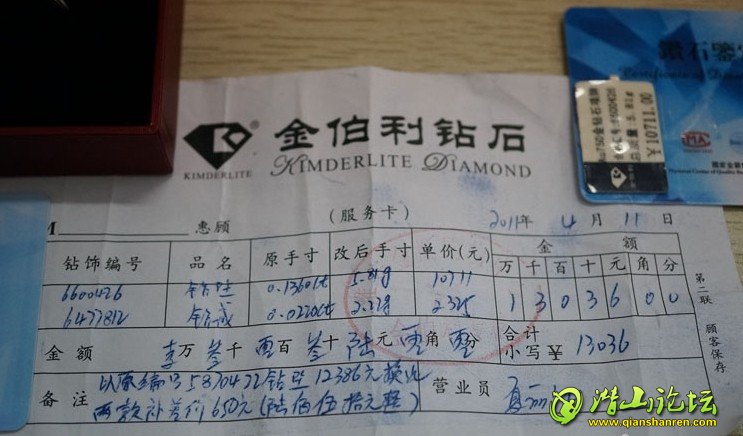 金伯利钻石
KIMDERLITE DIAMOND
KIMDERLITE
鑽石鑒
Certificate of Diamo
￥10711.00
MA
(服务卡)
M 惠顾
2011年 4 月 11 日
钻饰编号 品名 原手寸 改后手寸 单价(元) 金额
万 千 百 十 元 角 分
6600426 0.1360ct 5.81g 10711 1 3 0 3 6 0 0
6477812 钻戒 0.0220ct 2.22g 2325
金额 壹万 叁千 零百 叁十 陆元 零角 零分 合计 小写￥ 13036
备注 以原编号5870422钻坠12386元换此
两款补差价650元(陆佰伍拾元整)
营业员
第二联 顾客保存
潜山论坛
www.qianshanren.com